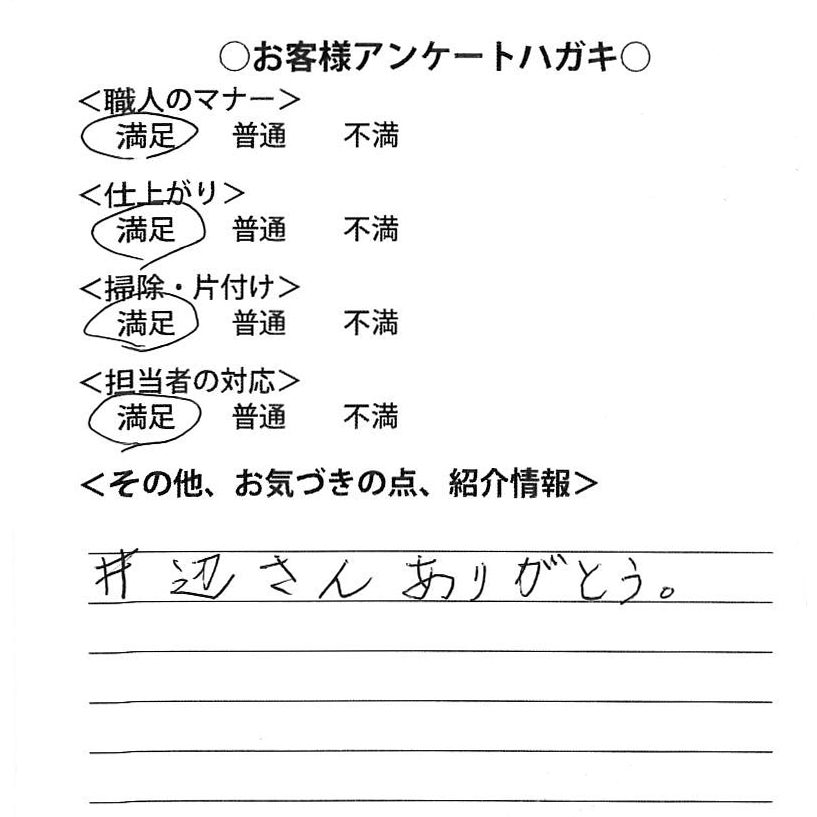 ○お客様アンケートハガキ○
＜職人のマナー＞
満足 普通 不満
＜仕上がり＞
満足 普通 不満
＜掃除・片付け＞
満足 普通 不満
＜担当者の対応＞
満足 普通 不満
＜その他、お気づきの点、紹介情報＞
井辺さんありがとう。